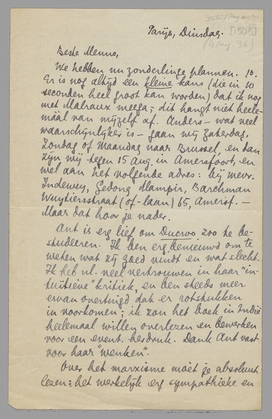 Parijs, Dinsdag.
Beste Menno,
We hebben nu zonderlinge plannen. 1o.
Er is nog altijd een kleine kans (die in 10
seconden heel groot kan worden) dat ik nog
met Malraux meega; dit hangt niet heele-
máál van mijzelf af. Anders – wat veel
waarschijnlijker is – gaan wij Zaterdag,
Zondag of Maandag naar Brussel, en dan
zijn wij tegen 15 Aug. in Amersfoort, en
wel aan het volgende adres: bij mevr.
Lindewey, Gedong Mampir, Barchman
Wuytiersstraat (of -laan) 65, Amersf. –
Maar dat hoor je nader.
Ant is erg lief om Ducroo zoo te be-
studeeren. Ik ben erg benieuwd om te
weten wat zij goed vindt en wat slecht.
Ik heb nl. veel vertrouwen in haar "in-
tuïtieve" kritiek, en ben steeds meer
ervan overtuigd dat er rotstukken
in voorkomen; ik zou het boek in Indië
heelemaal willen overlezen en bewerken
voor een event. herdruk. Dank Ant vast
voor haar "wenken".
Over het marxisme móét je absoluut
lezen: het werkelijk erg sympathieke en